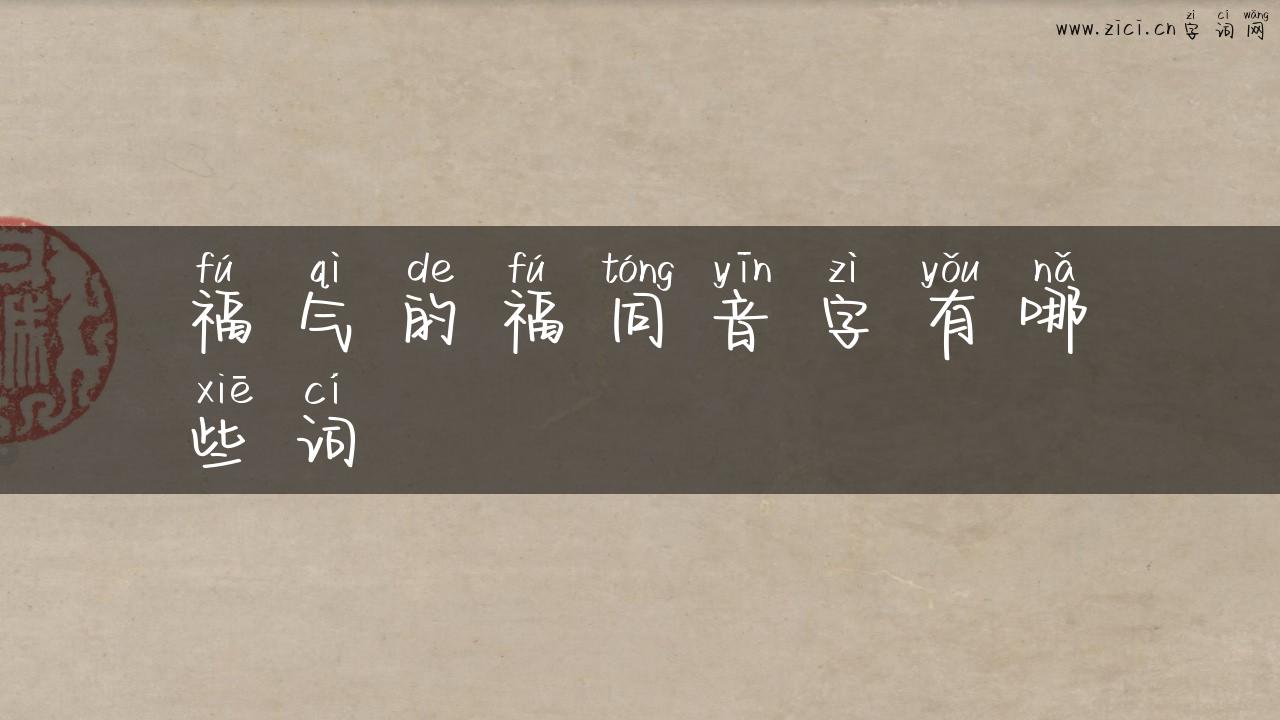 zì cí wǎng
www.zici.cn 字词网
fú qì de fú tóng yīn zì yǒu nǎ
福气的福同音字有哪
xiē cí
些词